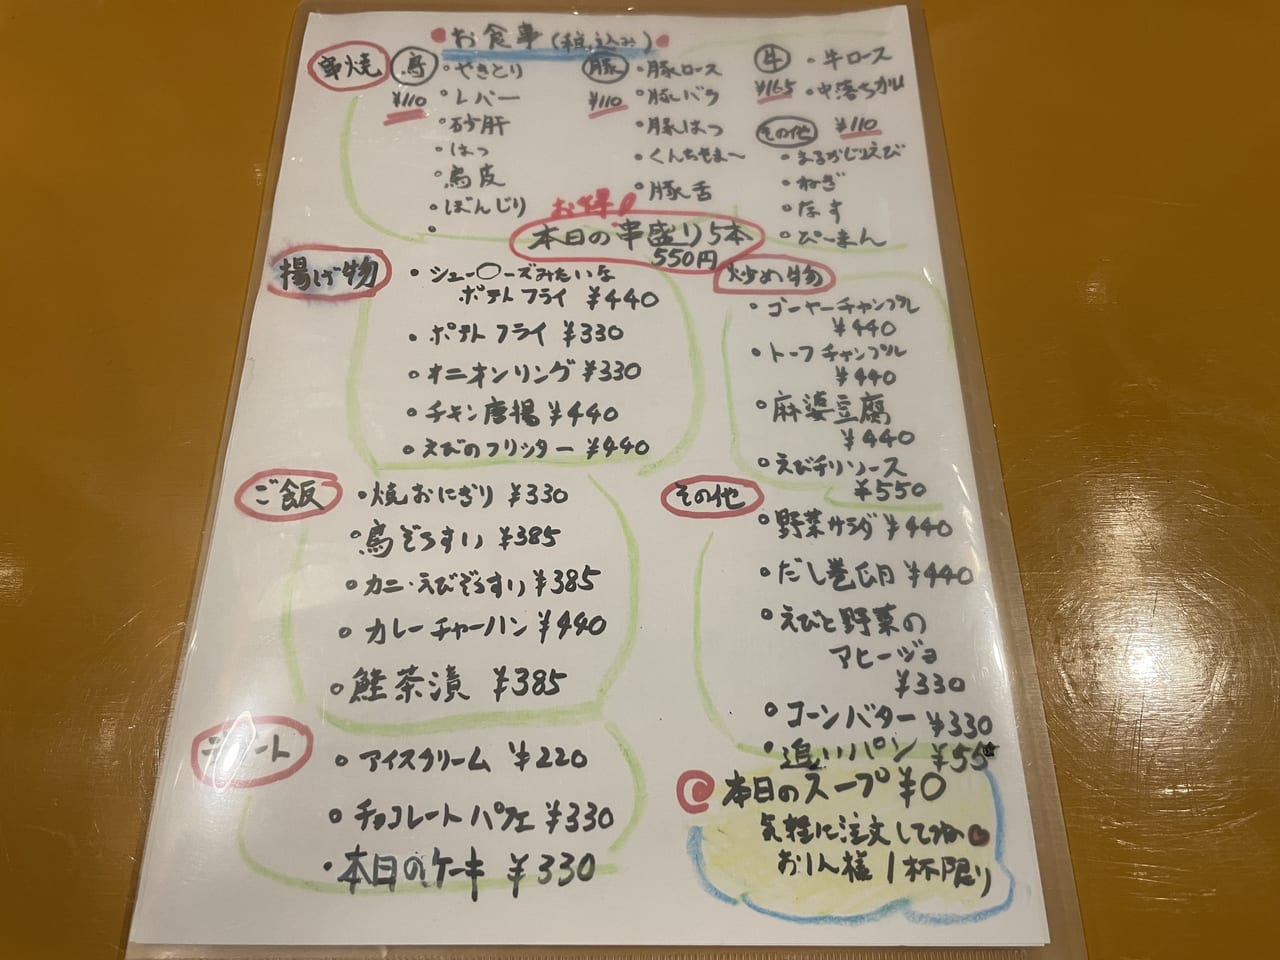 お食事(税込み)
串焼
鳥
¥110
やきとり
レバー
砂肝
はつ
鳥皮
ぼんじり
豚
¥110
豚ロース
豚バラ
豚はつ
くんちゃま〜
豚舌
牛
¥165
牛ロース
中落ちカルビ
その他 ¥110
まるかじりえび
ねぎ
なす
ぴーまん
お得!
本日の串盛り5本
550円
揚げ物
シュー〇ーズみたいな
ポテトフライ ¥440
ポテトフライ ¥330
オニオンリング ¥330
チキン唐揚 ¥440
えびのフリッター ¥440
炒め物
ゴーヤーチャンプル
¥440
トーフチャンプル
¥440
麻婆豆腐
¥440
えびチリソース
¥550
ご飯
焼おにぎり ¥330
鳥ぞうすい ¥385
カニ・えびぞうすい ¥385
カレーチャーハン ¥440
鮭茶漬 ¥385
その他
野菜サラダ ¥440
だし巻卵 ¥440
えびと野菜の
アヒージョ
¥330
コーンバター ¥330
追いパン ¥55
デザート
アイスクリーム ¥220
チョコレートパフェ ¥330
本日のケーキ ¥330
本日のスープ ¥0
気軽に注文してね
お1人様1杯限り